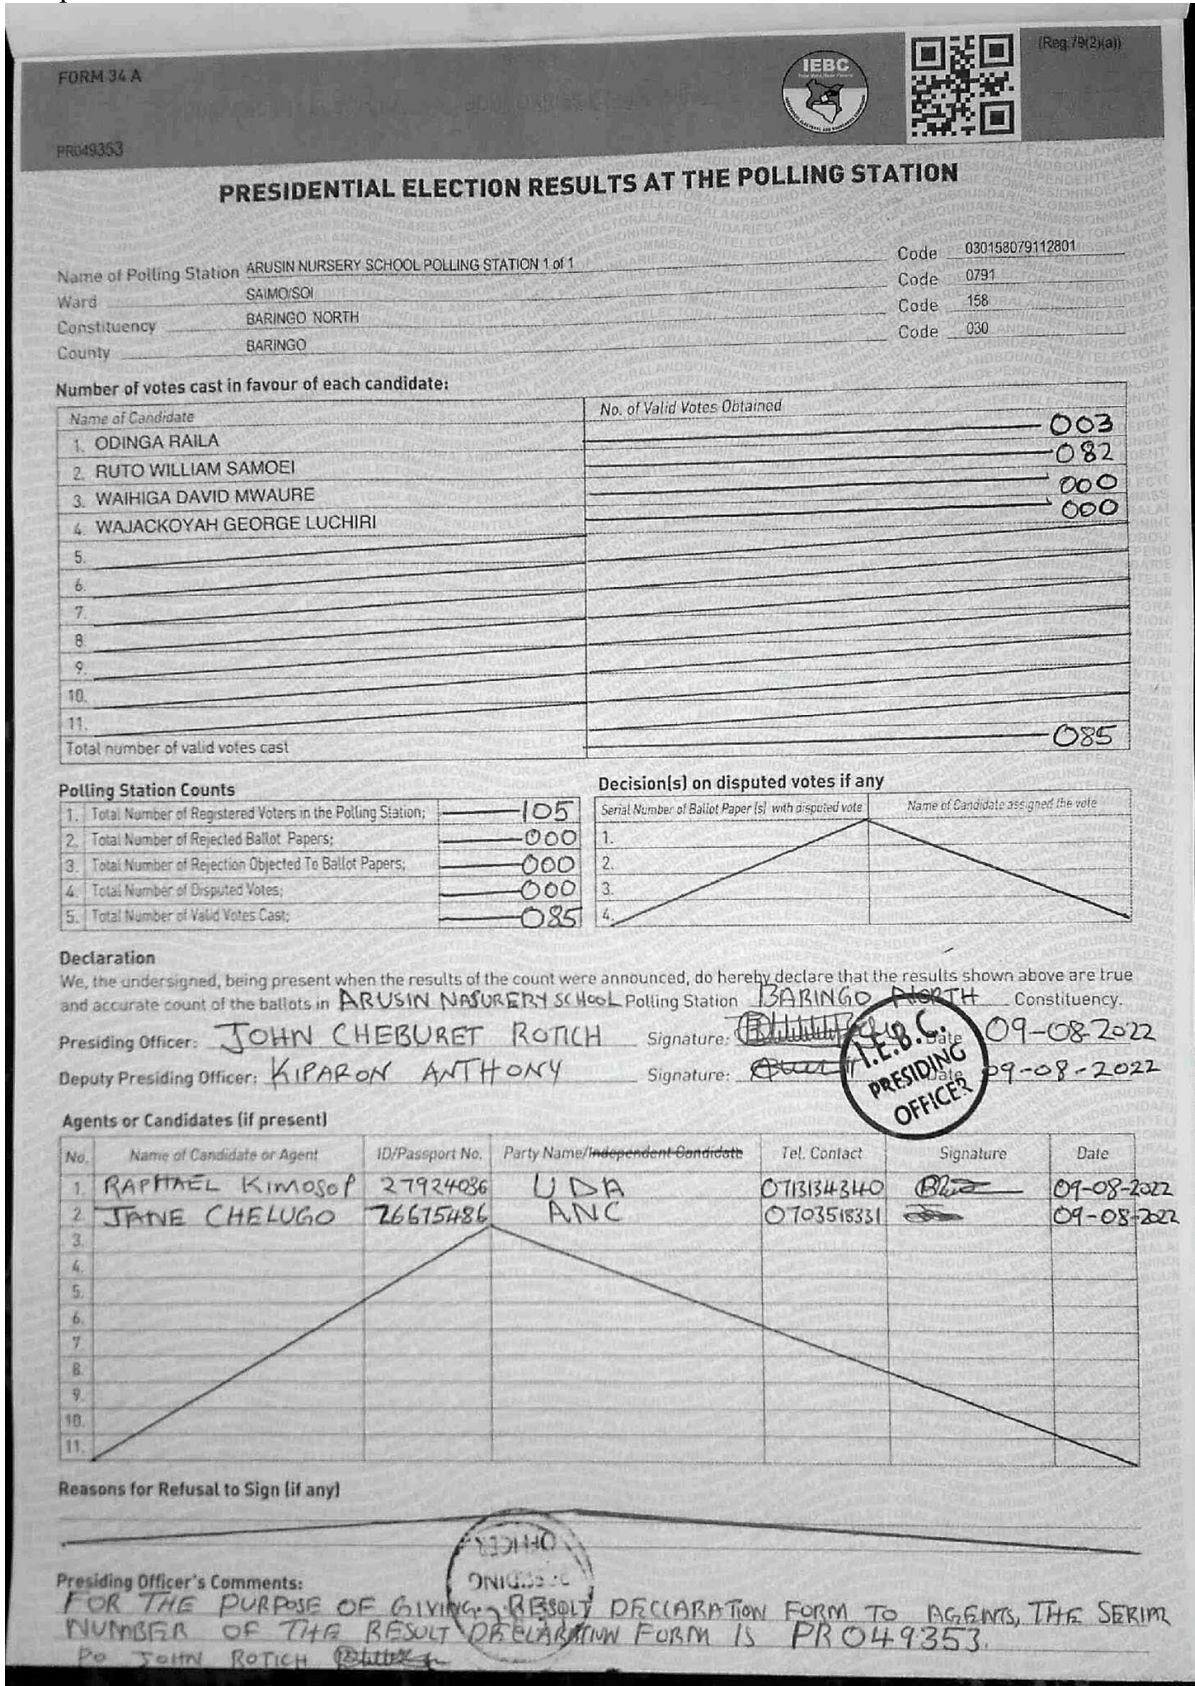 FORM 34 A
IEBC
(Reg.79(2)(a))
PR049353
PRESIDENTIAL ELECTION RESULTS AT THE POLLING STATION
Name of Polling Station ARUSIN NURSERY SCHOOL POLLING STATION 1 of 1 Code 030158079112801
Ward SAIMO/SOI Code 0791
Constituency BARINGO NORTH Code 158
County BARINGO Code 030
Number of votes cast in favour of each candidate:
Name of Candidate No. of Valid Votes Obtained
1. ODINGA RAILA 003
2. RUTO WILLIAM SAMOEI 082
3. WAIHIGA DAVID MWAURE 000
4. WAJACKOYAH GEORGE LUCHIRI 000
5.
6.
7.
8.
9.
10.
11.
Total number of valid votes cast 085
Polling Station Counts
1. Total Number of Registered Voters in the Polling Station; 105
2. Total Number of Rejected Ballot Papers; 000
3. Total Number of Rejection Objected To Ballot Papers; 000
4. Total Number of Disputed Votes; 000
5. Total Number of Valid Votes Cast; 085
Decision(s) on disputed votes if any
Serial Number of Ballot Paper (s) with disputed vote Name of Candidate assigned the vote
1.
2.
3.
4.
Declaration
We, the undersigned, being present when the results of the count were announced, do hereby declare that the results shown above are true
and accurate count of the ballots in ARUSIN NASURERY SCHOOL Polling Station BARINGO NORTH Constituency.
Presiding Officer: JOHN CHEBURET ROTICH Signature: Date 09-08-2022
Deputy Presiding Officer: KIPARON ANTHONY Signature: Date 09-08-2022
I.E.B.C.
PRESIDING
OFFICER
Agents or Candidates (if present)
No. Name of Candidate or Agent ID/Passport No. Party Name/Independent Candidate Tel. Contact Signature Date
1. RAPHAEL KIMOSOP 27924036 UDA 0713134340 09-08-2022
2. JANE CHELUGO 26675486 ANC 0703518331 09-08-2022
3.
4.
5.
6.
7
8.
9.
10.
11.
Reasons for Refusal to Sign (if any)
OFFICER
PRESIDING
Presiding Officer's Comments:
FOR THE PURPOSE OF GIVING RESULT DECLARATION FORM TO AGENTS, THE SERIAL
NUMBER OF THE RESULT DECLARATION FORM IS PR049353.
PO JOHN ROTICH